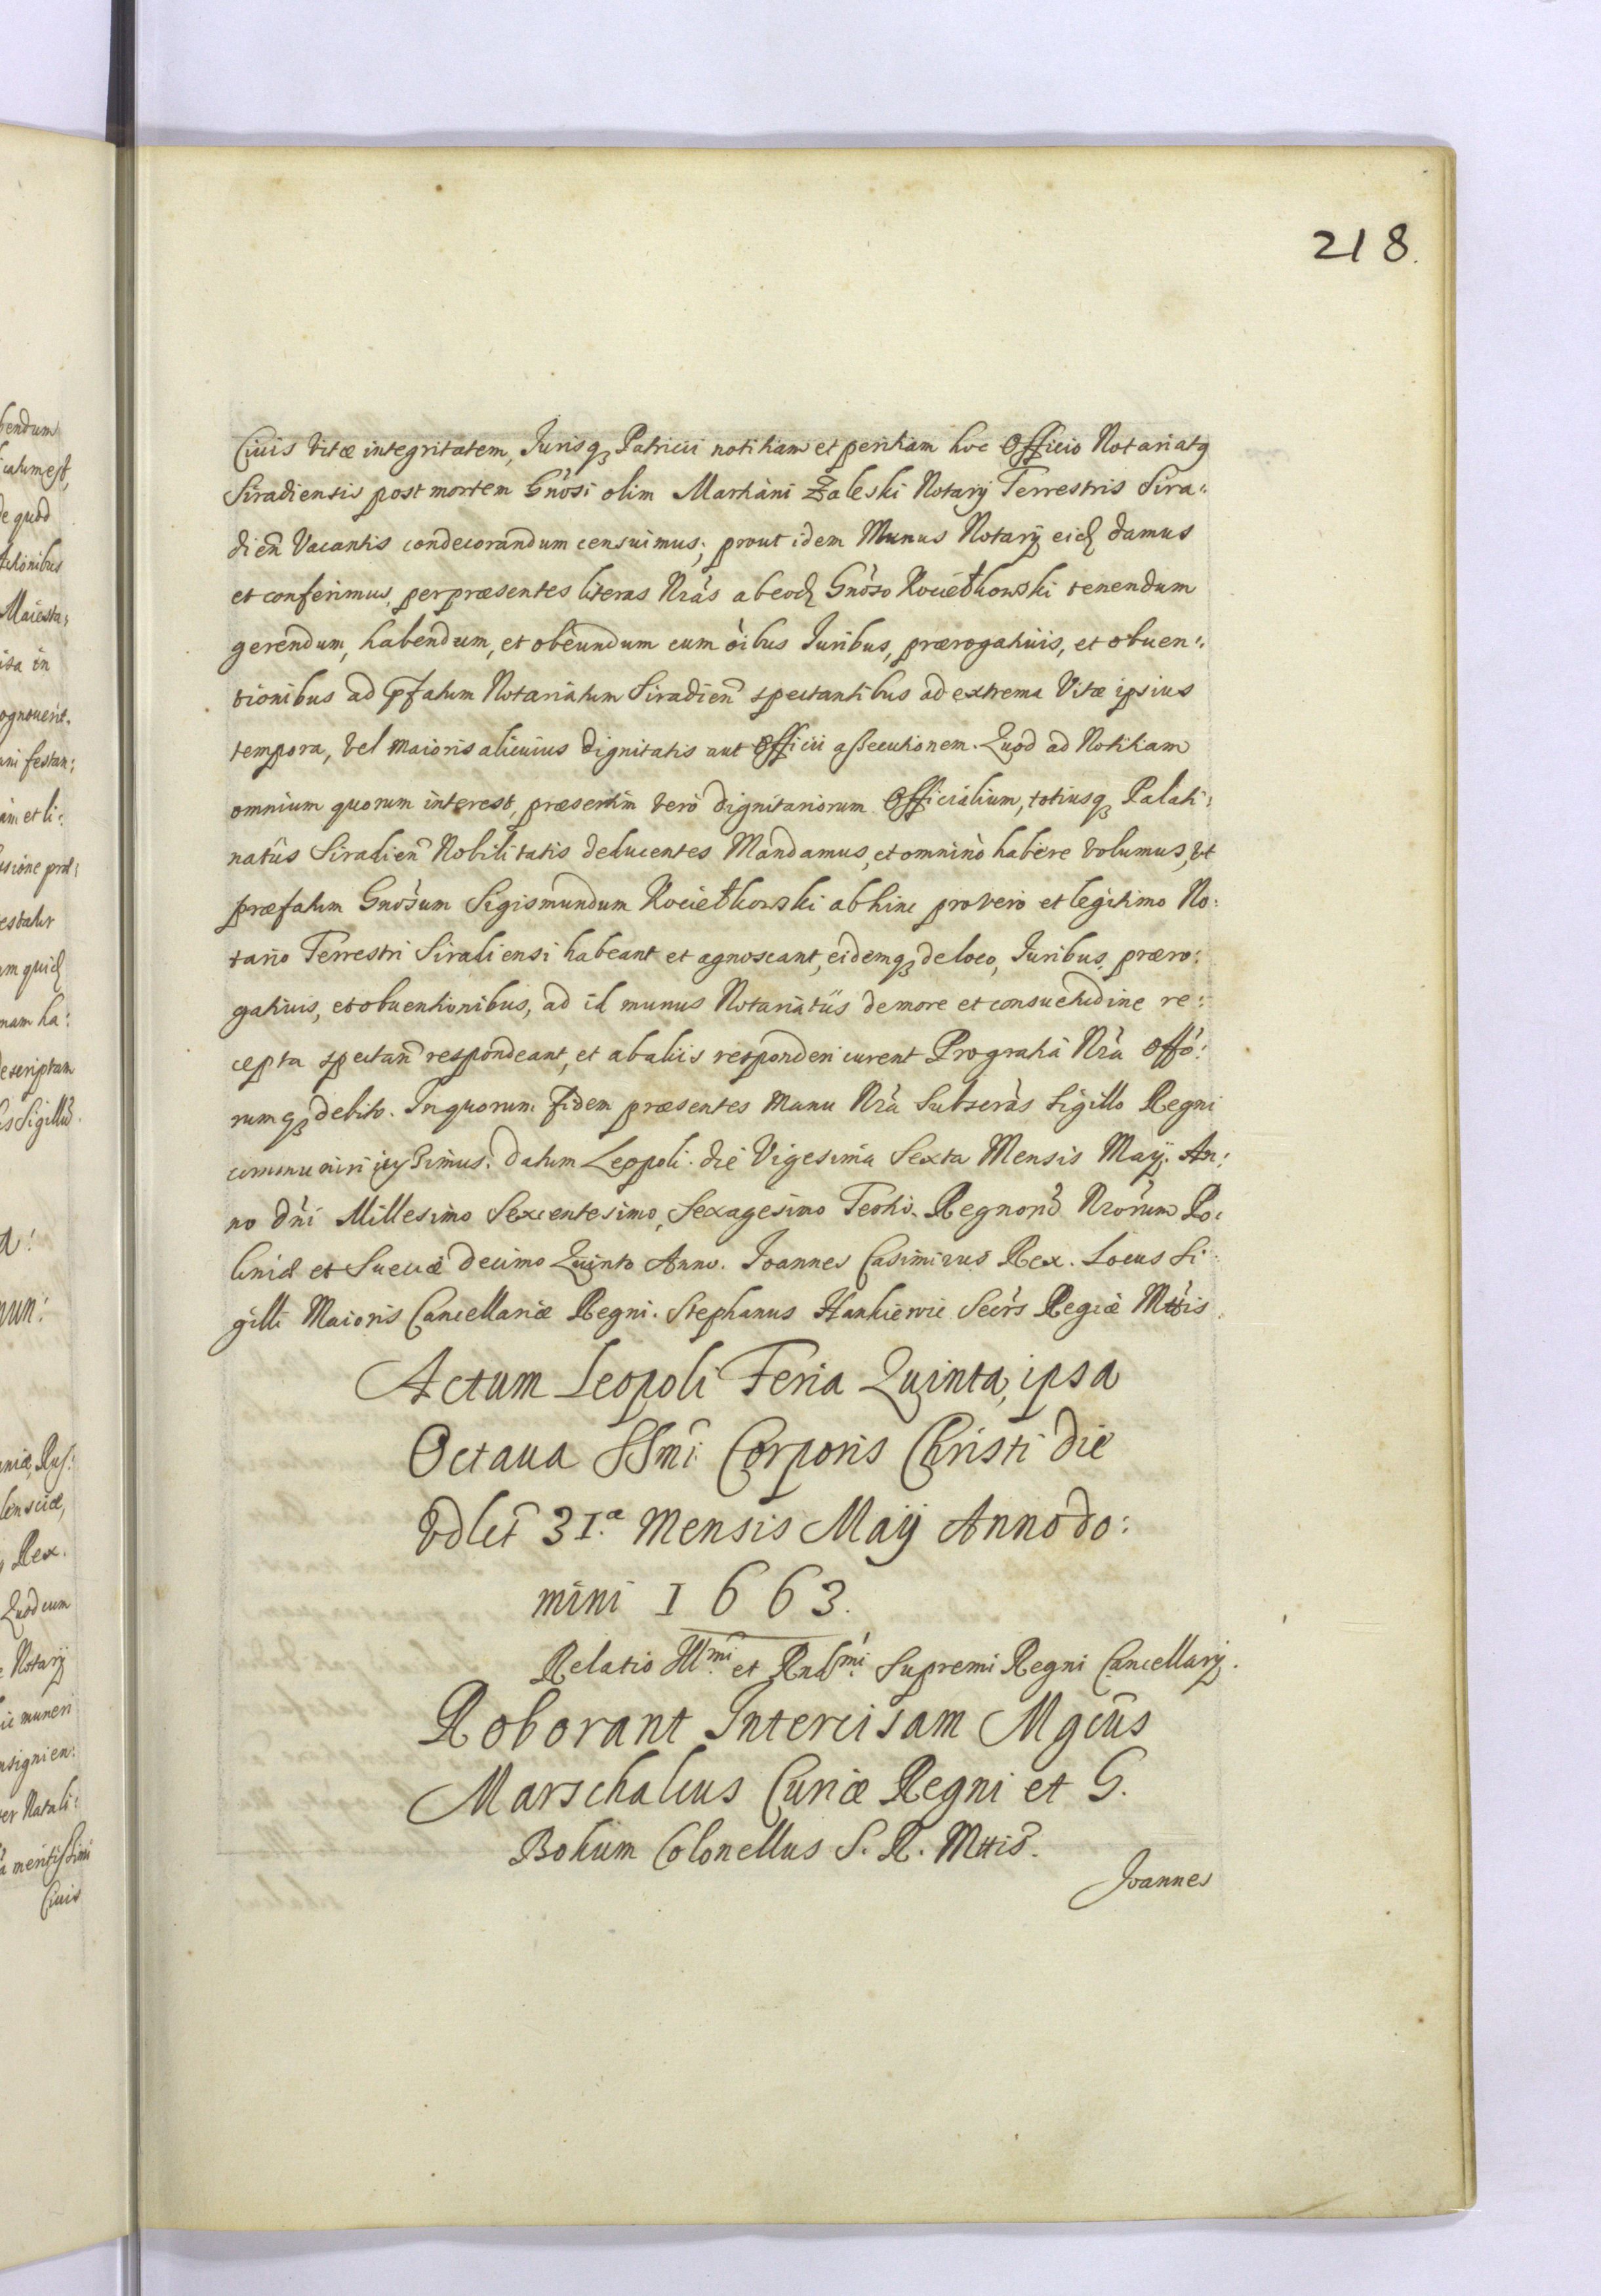 218.
Ciuis Vitæ integritatem, Jurisq₃ Patricii notitiam et peritiam hoc Officio Notariatq
Siradiensis post mortem Gnosi olim Martiani Zaleski Notarij Terrestris Sira:
dien̄ Vacantis condecorandum censuimus; prout idem Munus Notarij eid damus
et conferimus, per præsentes literas Nrás ab eod Gnoso Kociełkowski tenendum
gerendum, habendum, et obeundum cum oibus Juribus, prærogatiuis, et obuen:
tionibus ad pfatum Notariatum Siradien̄ spectantibus ad extrema Vitæ ipsius
tempora, Vel maioris alicuius Dignitatis aut Officii assecutionem. Quod ad Notitiam
omnium quorum interest, præsertim Vero Dignitariorum Officialium, totiusq₃ Palati:
natûs Siradien̄ Nobilitatis deducentes Mandamus, et omninò habere Volumus, Vt
præfatum Gnosum Sigismundum Kociełkowski abhinc pro Vero et legitimo No:
tario Terrestri Siradiensi habeant et agnoscant, eidemq₃ de loco, Juribus, præro:
gatiuis, et obuentionibus, ad id munus Notariatûs de more et consuetudine re:
cepta spectan̄ respondeant, et ab aliis responderi curent Pro gratia Nrà Offo:
rumq₃ debito. In quorum fidem præsentes Manu Nrà Subscras Sigillo Regni
communiri jussimus. Datum Leopoli. die Vigesima Sexta Mensis Maij. An:
no Dni Millesimo Sexcentesimo, Sexagesimo Tertio. Regnorū Nrorum Po:
loniæ et Sueciæ Decimo Quinto Anno. Joannes Casimirus Rex. Locus Si:
gilli Maioris Cancellariæ Regni. Stephanus Hankiewic Secrs Regiæ Mttis.
Actum Leopoli Feria Quinta, ipsa
Octaua SSmi Corporis Christi die
Vdlct 31.ª Mensis Maij Anno do:
mini 1663.
Relatio Illmi et Rndmi Supremi Regni Cancellarij.
Roborant Intercisam Mgcûs
Marschalcus Curiæ Regni et G.
Bokum Colonellus S. R. Mttis.
Joannes